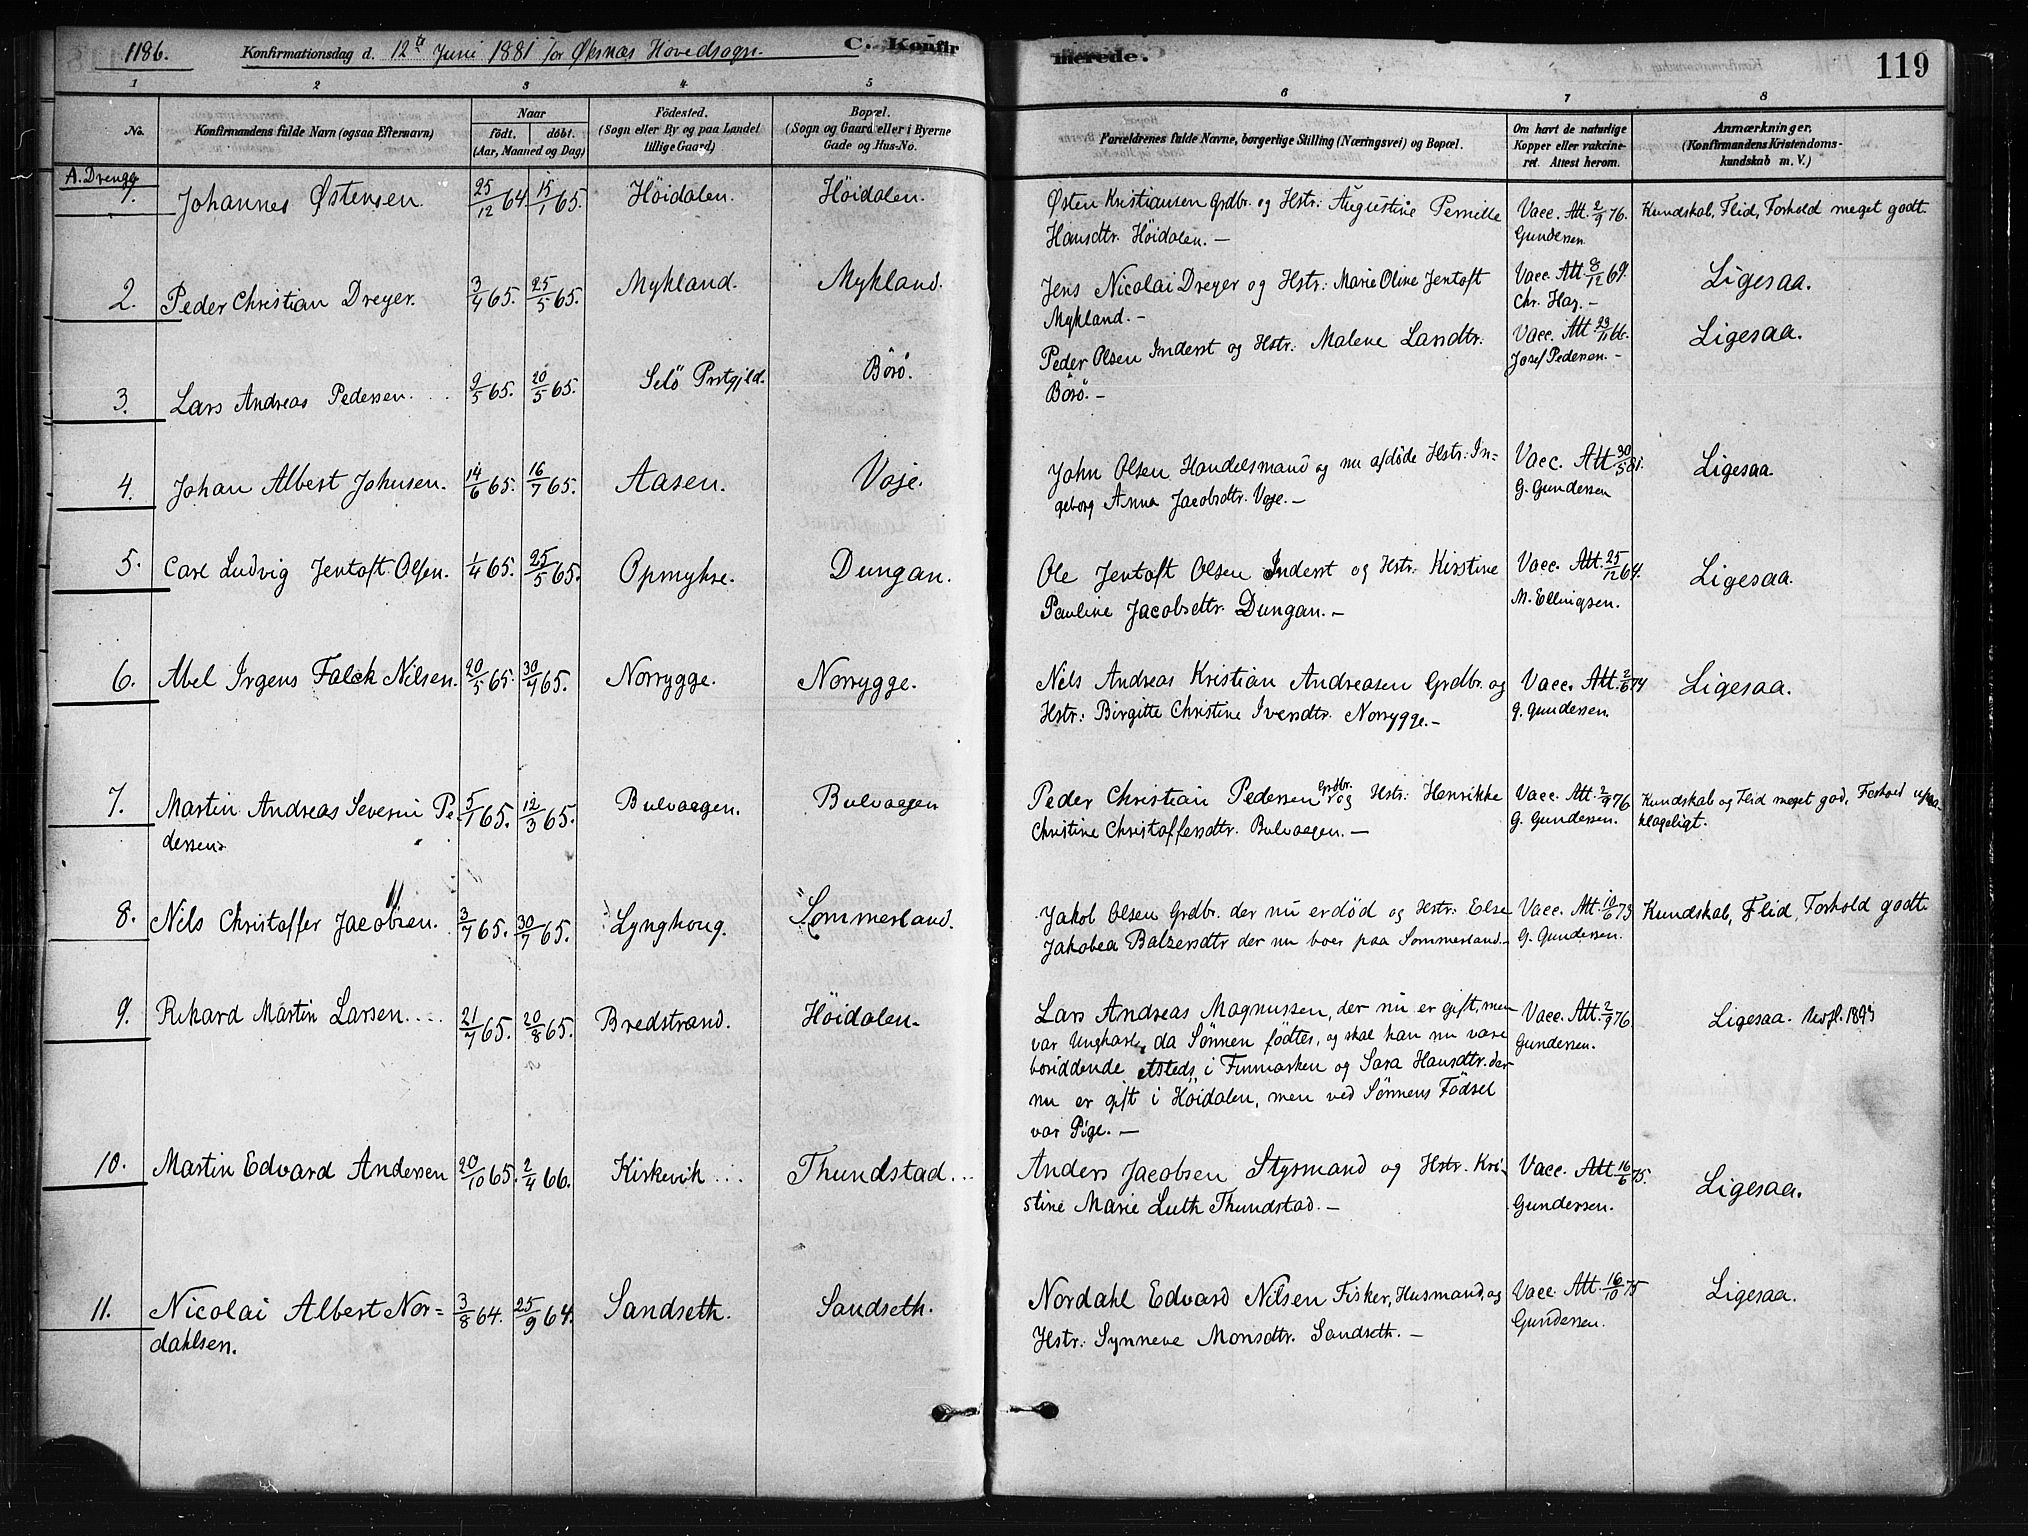 1186. Konfirmationsdag d. 12te Juni 1881 for Øksnæs Hovedsogn. C. Konfir
merede. 119
1 2 3 4 5
6 7 8
No. Konfirmandens fulde Navn (ogsaa Efternavn) Naar født. døbt. (Aar, Maaned og Dag) Födested. (Sogn eller By og paa Landet tillige Gaard) Bopæl. (Sogn og Gaard eller i Byerne Gade og Hus-No.
Forældrenes fulde Navne, borgerlige Stilling (Næringsvei) og Bopæl. Om havt de naturlige Kopper eller vakcineret. Attest herom. Anmærkninger, (Konfirmandens Kristendomskundskab m. V.)
A. Drenge
1. Johannes Østensen. 25/12 64 15/1 65. Höidalen. Höidalen. Østen Kristiansen Grdbr. og Hstr: Augustine Pernille Vacc. Att. 2/9 76. Kundskab, Flid, Forhold meget godt.
Hansdtr. Höidalen. — Gundersen
2. Peder Christian Dreyer. 3/4 65. 25/5 65. Mykland. Mykland. Jens Nicolai Dreyer og Hstr: Marie Oline Jentoft Vacc. Att 8/12 69. Ligesaa.
Mykland. — Chr. Hag. —
3. Lars Andreas Pedersen. 9/5 65. 20/5 65. Selö Prstgjld. Börö. Peder Olsen Inderst og Hstr: Malene Landtr. Vacc. Att 23/11 66. Ligesaa.
Börö. — Josef Pedersen. —
4. Johan Albert Johnsen. 14/6 65. 16/7 65. Aasen. Voje. John Olsen Handelsmand og nu afdöde Hstr: In= Vacc. Att 30/5 81. Ligesaa.
geborg Anna Jacobsdtr. Voje. — G. Gundersen
5. Carl Ludvig Jentoft Olsen. 1/4 65. 25/5 65. Opmykse. Dungan. Ole Jentoft Olsen Inderst og Hstr: Kirstine Vacc. Att. 25/12 64. Ligesaa.
Pauline Jacobsdtr. Dungan. — M. Ellingsen.
6. Abel Irgens Falck Nilsen. 20/5 65. 30/4 65. Norrygge. Norrygge. Nels Andreas Kristian Andreasen Grdbr. og Vacc. Att. 2/6 74 Ligesaa.
Hstr: Birgitte Christine Iversdtr. Norrygge. — G. Gundersen.
7. Martin Andreas Severin Pe= 5/1 65. 12/3 65. Bulvaagen. Bulvaagen Peder Christian Pedersen Grdbr. og Hstr: Henrikke Vacc. Att. 2/9 76 Kundskab og Flid meget god, Forhold upaa
dersen. Christine Christoffersdtr. Bulvaagen. — G. Gundersen. klageligt.
8. Nels Christoffer Jacobsen. 3/7 65. 30/7 65. Lynghoug. Sommerland. Jakob Olsen Grdbr. der nu er död og Hstr: Else Vacc. Att. 10/6 73 Kundskab, Flid, Forhold godt.
Jakobea Balzersdtr der nu boer paa Sommerland. — G. Gundersen.
9. Rikard Martin Larsen. 21/7 65. 20/8 65. Bredstrand. Höidalen. Lars Andreas Magnussen, der nu er gift, men Vacc. Att. 2/9 76. Ligesaa. 1893
var Ungkarl, da Sønnen födtes, og skal han nu være Gundersen.
boriddende etsteds i Finmarken og Sara Hansdtr. der
nu er gift i Höidalen, men ved Sønnens Födsel
var Pige. —
10. Martin Edvard Andersen 20/10 65. 2/4 66. Kirkevik Thundstad Anders Jacobsen Stysmand og Hstr. Kri= Vacc. Att 16/6 75. Ligesaa.
stine Marie Luth Thundstad. — Gundersen.
11. Nicolai Albert Nor= 3/8 64. 25/9 64. Sandseth. Sandseth. Nordahl Edvard Nilsen Fisker, Husmand, og Vacc. Att. 16/10 75 Ligesaa.
dahlsen. Hstr: Synneve Monsdtr. Sandseth. — Gundersen.